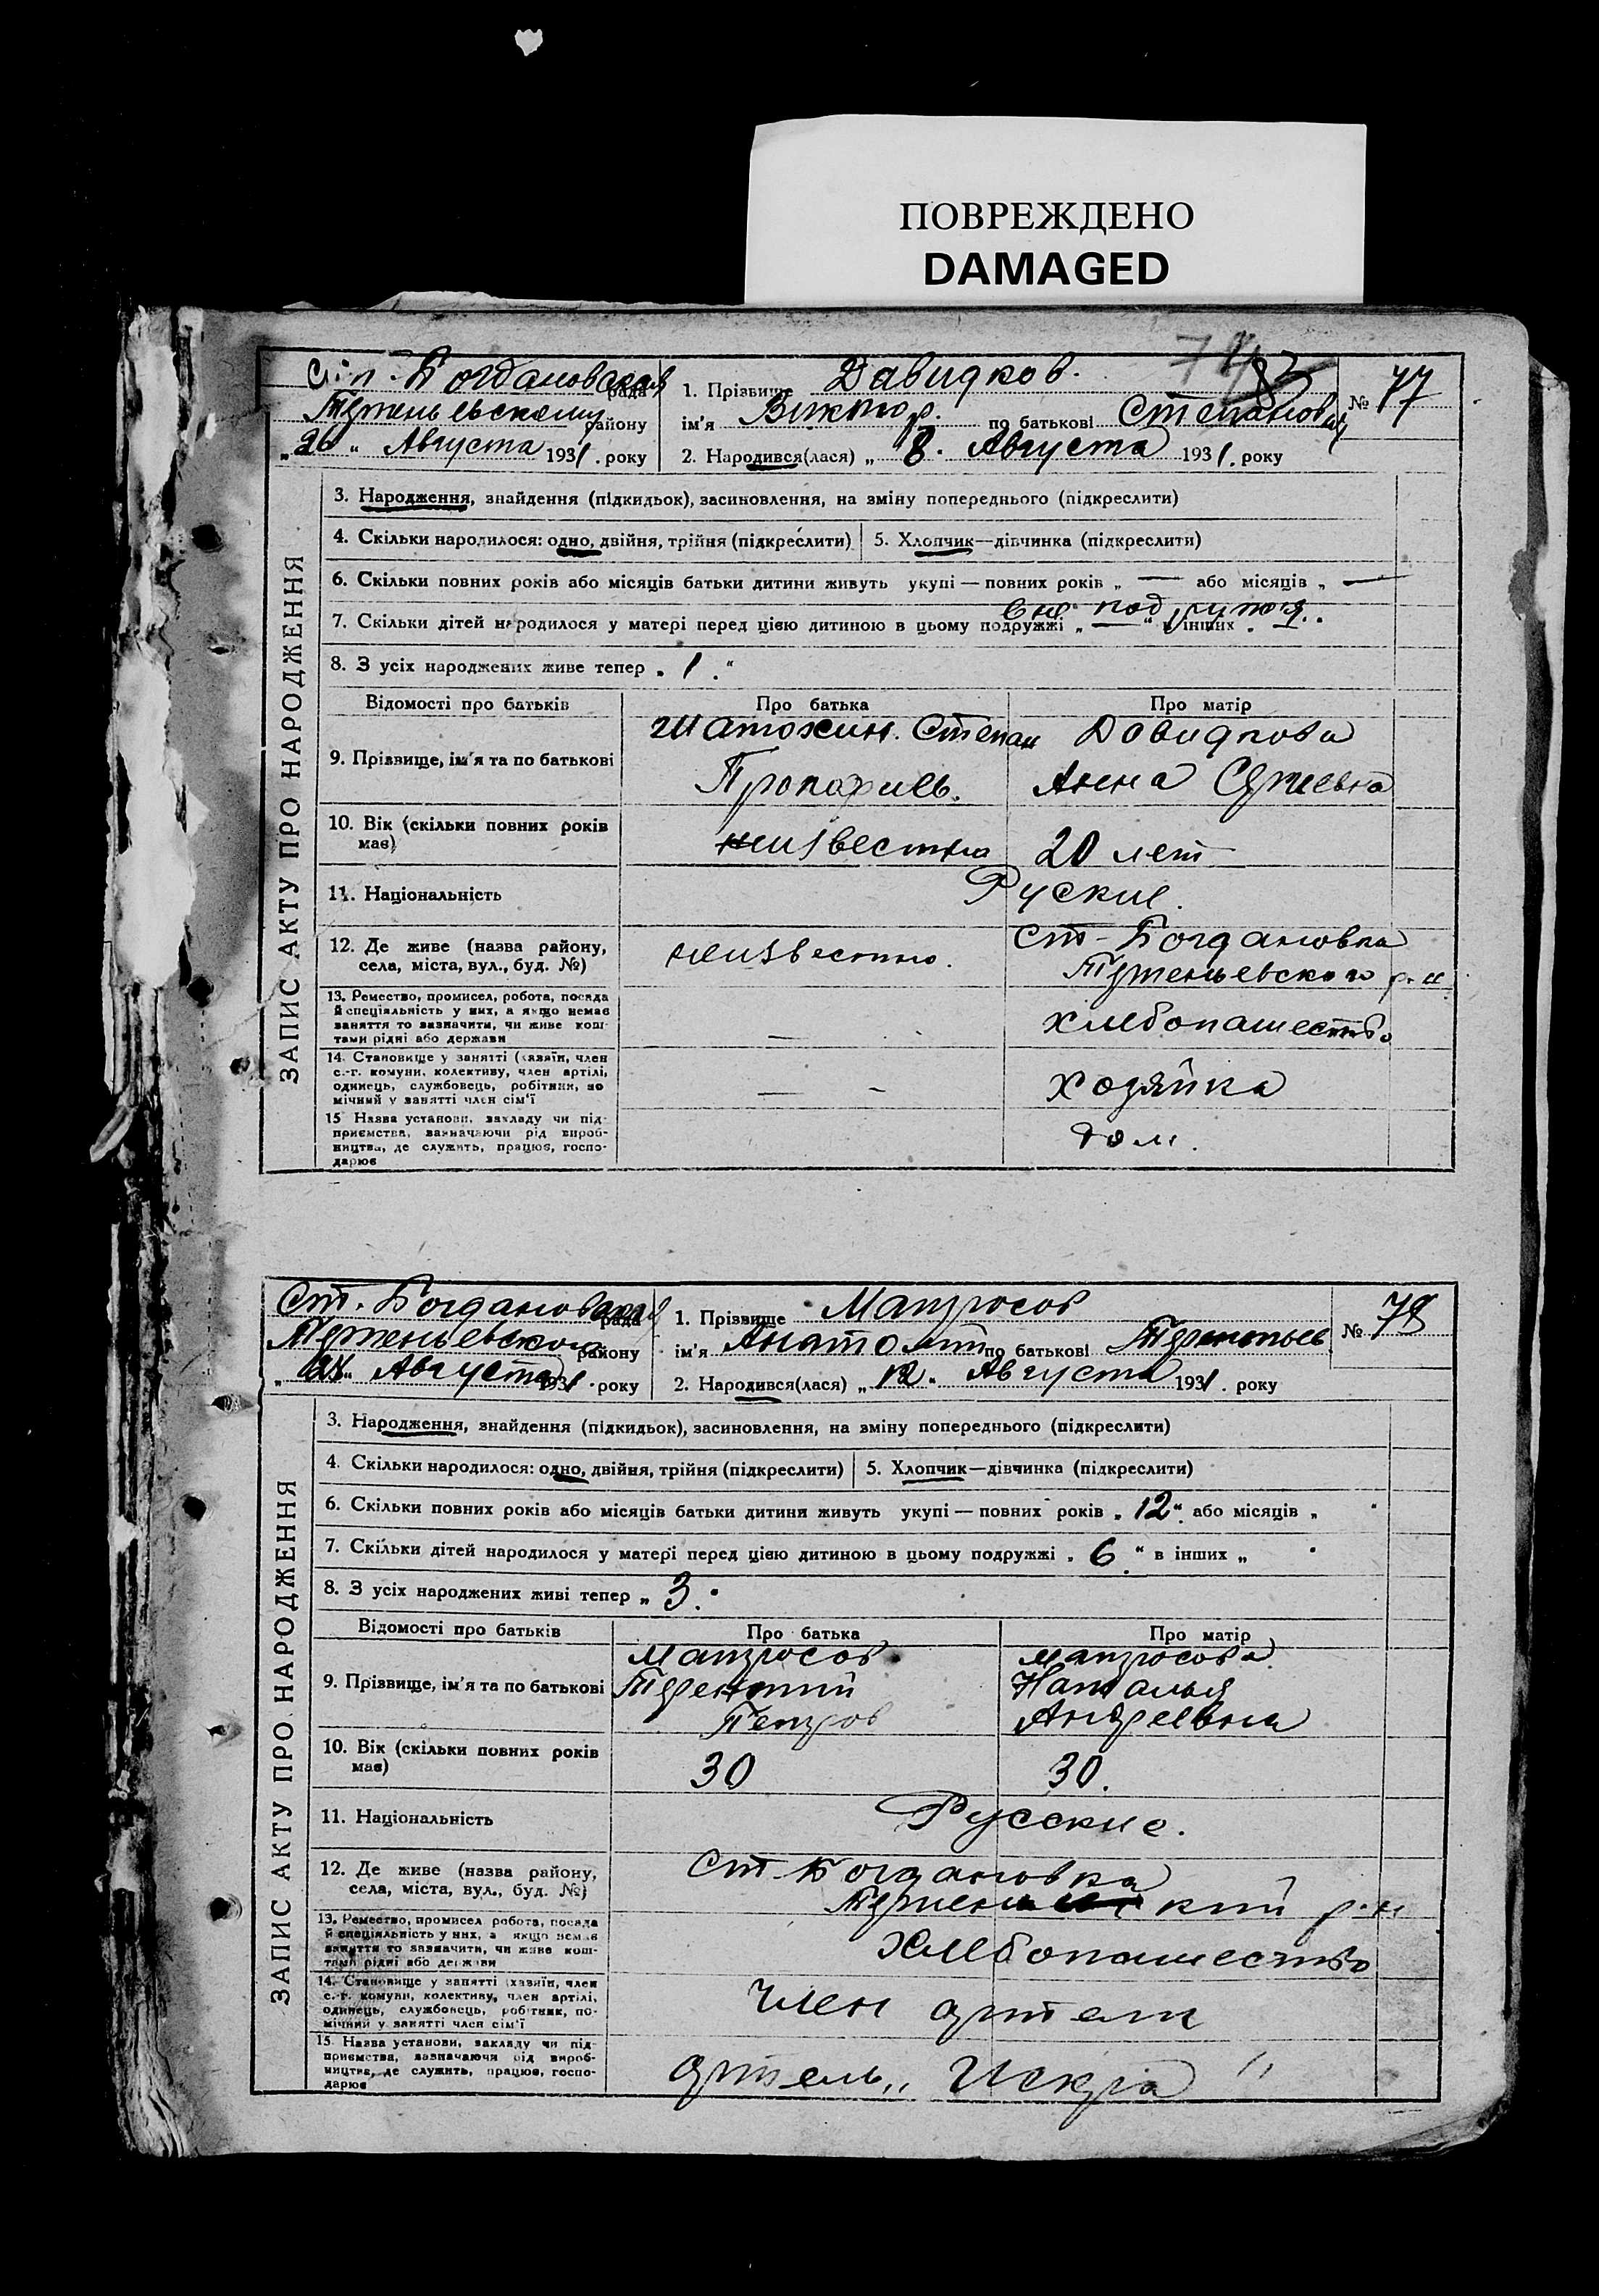 ПОВРЕЖДЕНО
DAMAGED
Ст. Богдановская рада
району
„26“ Августа 1931. року
1. Прізвище Давидков.
ім'я Виктор. по батькові Степанович
2. Народився(лася) „8. Августа 1931. року
№ 77
ЗАПИС АКТУ ПРО НАРОДЖЕННЯ
3. Народження, знайдення (підкидьок), засиновлення, на зміну попереднього (підкреслити)
4. Скільки народилося: одно, двійня, трійня (підкреслити)
5. Хлопчик—дівчинка (підкреслити)
6. Скільки повних років або місяців батьки дитини живуть укупі — повних років „ — або місяців „ —
7. Скільки дітей народилося у матері перед цією дитиною в цьому подружжі „ — “ в інших
8. З усіх народжених живе тепер „ 1 “
Відомості про батьків
Про батька
Про матір
9. Прізвище, ім'я та по батькові
Шатохин. Степан
Давидкова
Анна Сергиевна
10. Вік (скільки повних років має)
неизвестно
20 лет
11. Національність
Руские.
12. Де живе (назва району, села, міста, вул., буд. №)
неизвестно.
Ст-Богдановка
р-н
13. Ремество, промисел, робота, посада й спеціяльність у них, а якщо немає заняття то зазначити, чи живе коштами рідні або держави
—
хлебопашество
14. Становище у занятті (хазяїн, член с.-г. комуни, колективу, член артілі, одинець, службовець, робітник, помічний у занятті член сім'ї
— -
хозяйка
15 Назва установи, закладу чи підприємства, зазначаючи рід виробництва, де служить, працює, господарює
дом.
Ст. Богдановская рада
району
Августа 1931. року
1. Прізвище Матросов
ім'я Анатолий по батькові Терентьев
2. Народився(лася) „12“ Августа 1931. року
№ 78
ЗАПИС АКТУ ПРО НАРОДЖЕННЯ
3. Народження, знайдення (підкидьок), засиновлення, на зміну попереднього (підкреслити)
4. Скільки народилося: одно, двійня, трійня (підкреслити)
5. Хлопчик—дівчинка (підкреслити)
6. Скільки повних років або місяців батьки дитини живуть укупі — повних років „12“ або місяців „
7. Скільки дітей народилося у матері перед цією дитиною в цьому подружжі „ 6 “ в інших „
8. З усіх народжених живі тепер „ 3.
Відомості про батьків
Про батька
Про матір
9. Прізвище, ім'я та по батькові
Матросов
Терентий
Петров
Матросова
Наталья
Андреевна
10. Вік (скільки повних років має)
30
30.
11. Національність
Русские.
12. Де живе (назва району, села, міста, вул., буд. №)
Ст-Богдановка
р-н
13. Ремество, промисел робота, посада й спеціяльність у них, а якщо немає заняття то зазначити, чи живе коштами рідні або держави
Хлебопашество
14. Становище у занятті (хазяїн, член с.-г. комуни, колективу, член артілі, одинець, службовець, робітник, помічний у занятті член сім'ї
Член артели
15. Назва установи, закладу чи підприємства, зазначаючи рід виробництва, де служить, працює, господарює
артель „Искра“